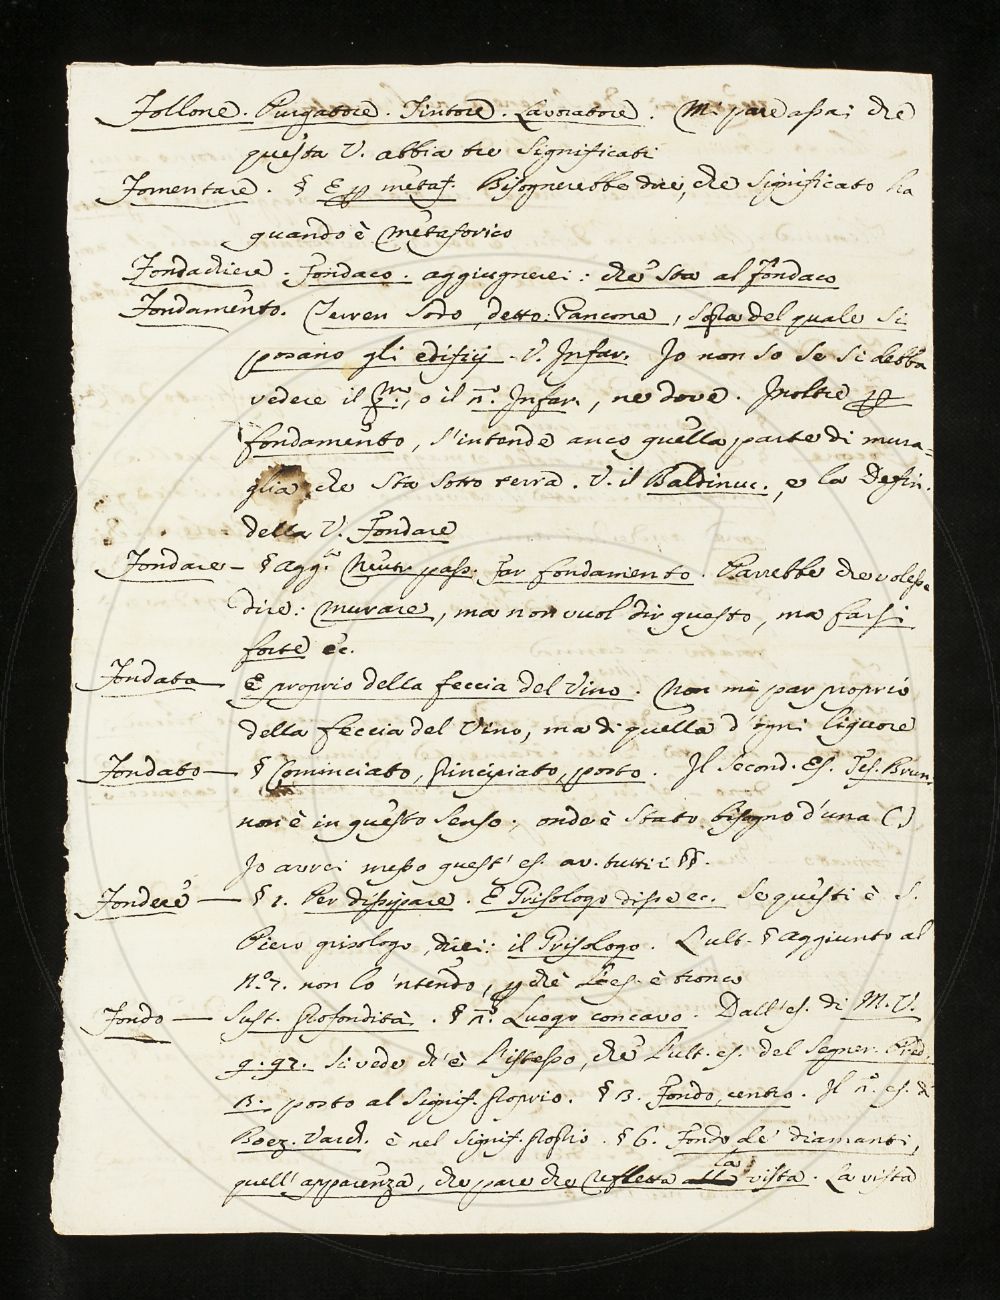 Follone. Purgatore. Tintore. Lavoratore. Mi pare assai che
questa V. abbia tre significati
Fomentare. § E p metaf. Bisognerebbe dire, che significato ha
quando è metaforico
Fondachiere. Fondaco. aggiugnerei: che sta al fondaco
Fondamento. Terren sodo, detto: Pancone, sopra del quale si
posano gli edifizj. V. Infar. Io non so se si debba
vedere il p.mo, o il n.o Infar., ne dove. Inoltre p
fondamento, s'intende anco quella parte di mura=
glia che sta sotto terra. V. il Baldinuc., e la Defin.
della V. Fondare
Fondare — § agg.to Neutr. pass. Far fondamento. Parrebbe che volesse
dire: murare, ma non vuol dir questo, ma farsi
forte ec.
Fondata — È proprio della feccia del Vino. Non mi par proprio
della feccia del Vino, ma di quella d'ogni liquore
Fondato — § Cominciato, principiato, posto. Il second. Es. Tes. Brun.
non è in questo senso, onde è stato bisogno d'una ( )
Io avrei messo quest' es. av. tutti i §§.
Fondere — § 2. Per dissipare. E Grisologo disse ec. Se questi è S.
Piero grisologo, direi: il Grisologo. L'ult. § aggiunto al
n.o 7. non lo 'ntendo, p chè l'es. è tronco
Fondo — Sust. profondità. § n.o Luogo concavo. Dall' es. di M. V.
9. 97. si vede ch' è l'istesso, che l'ult. es. del Segner. Pred.
13. posto al signif. proprio. § 13. Fondo, centro. Il n.o es. di
Boez. Varch. è nel signif. proprio. § 6. Fondo de' diamanti,
quell' apparenza, che pare che refletta la vista. La vista